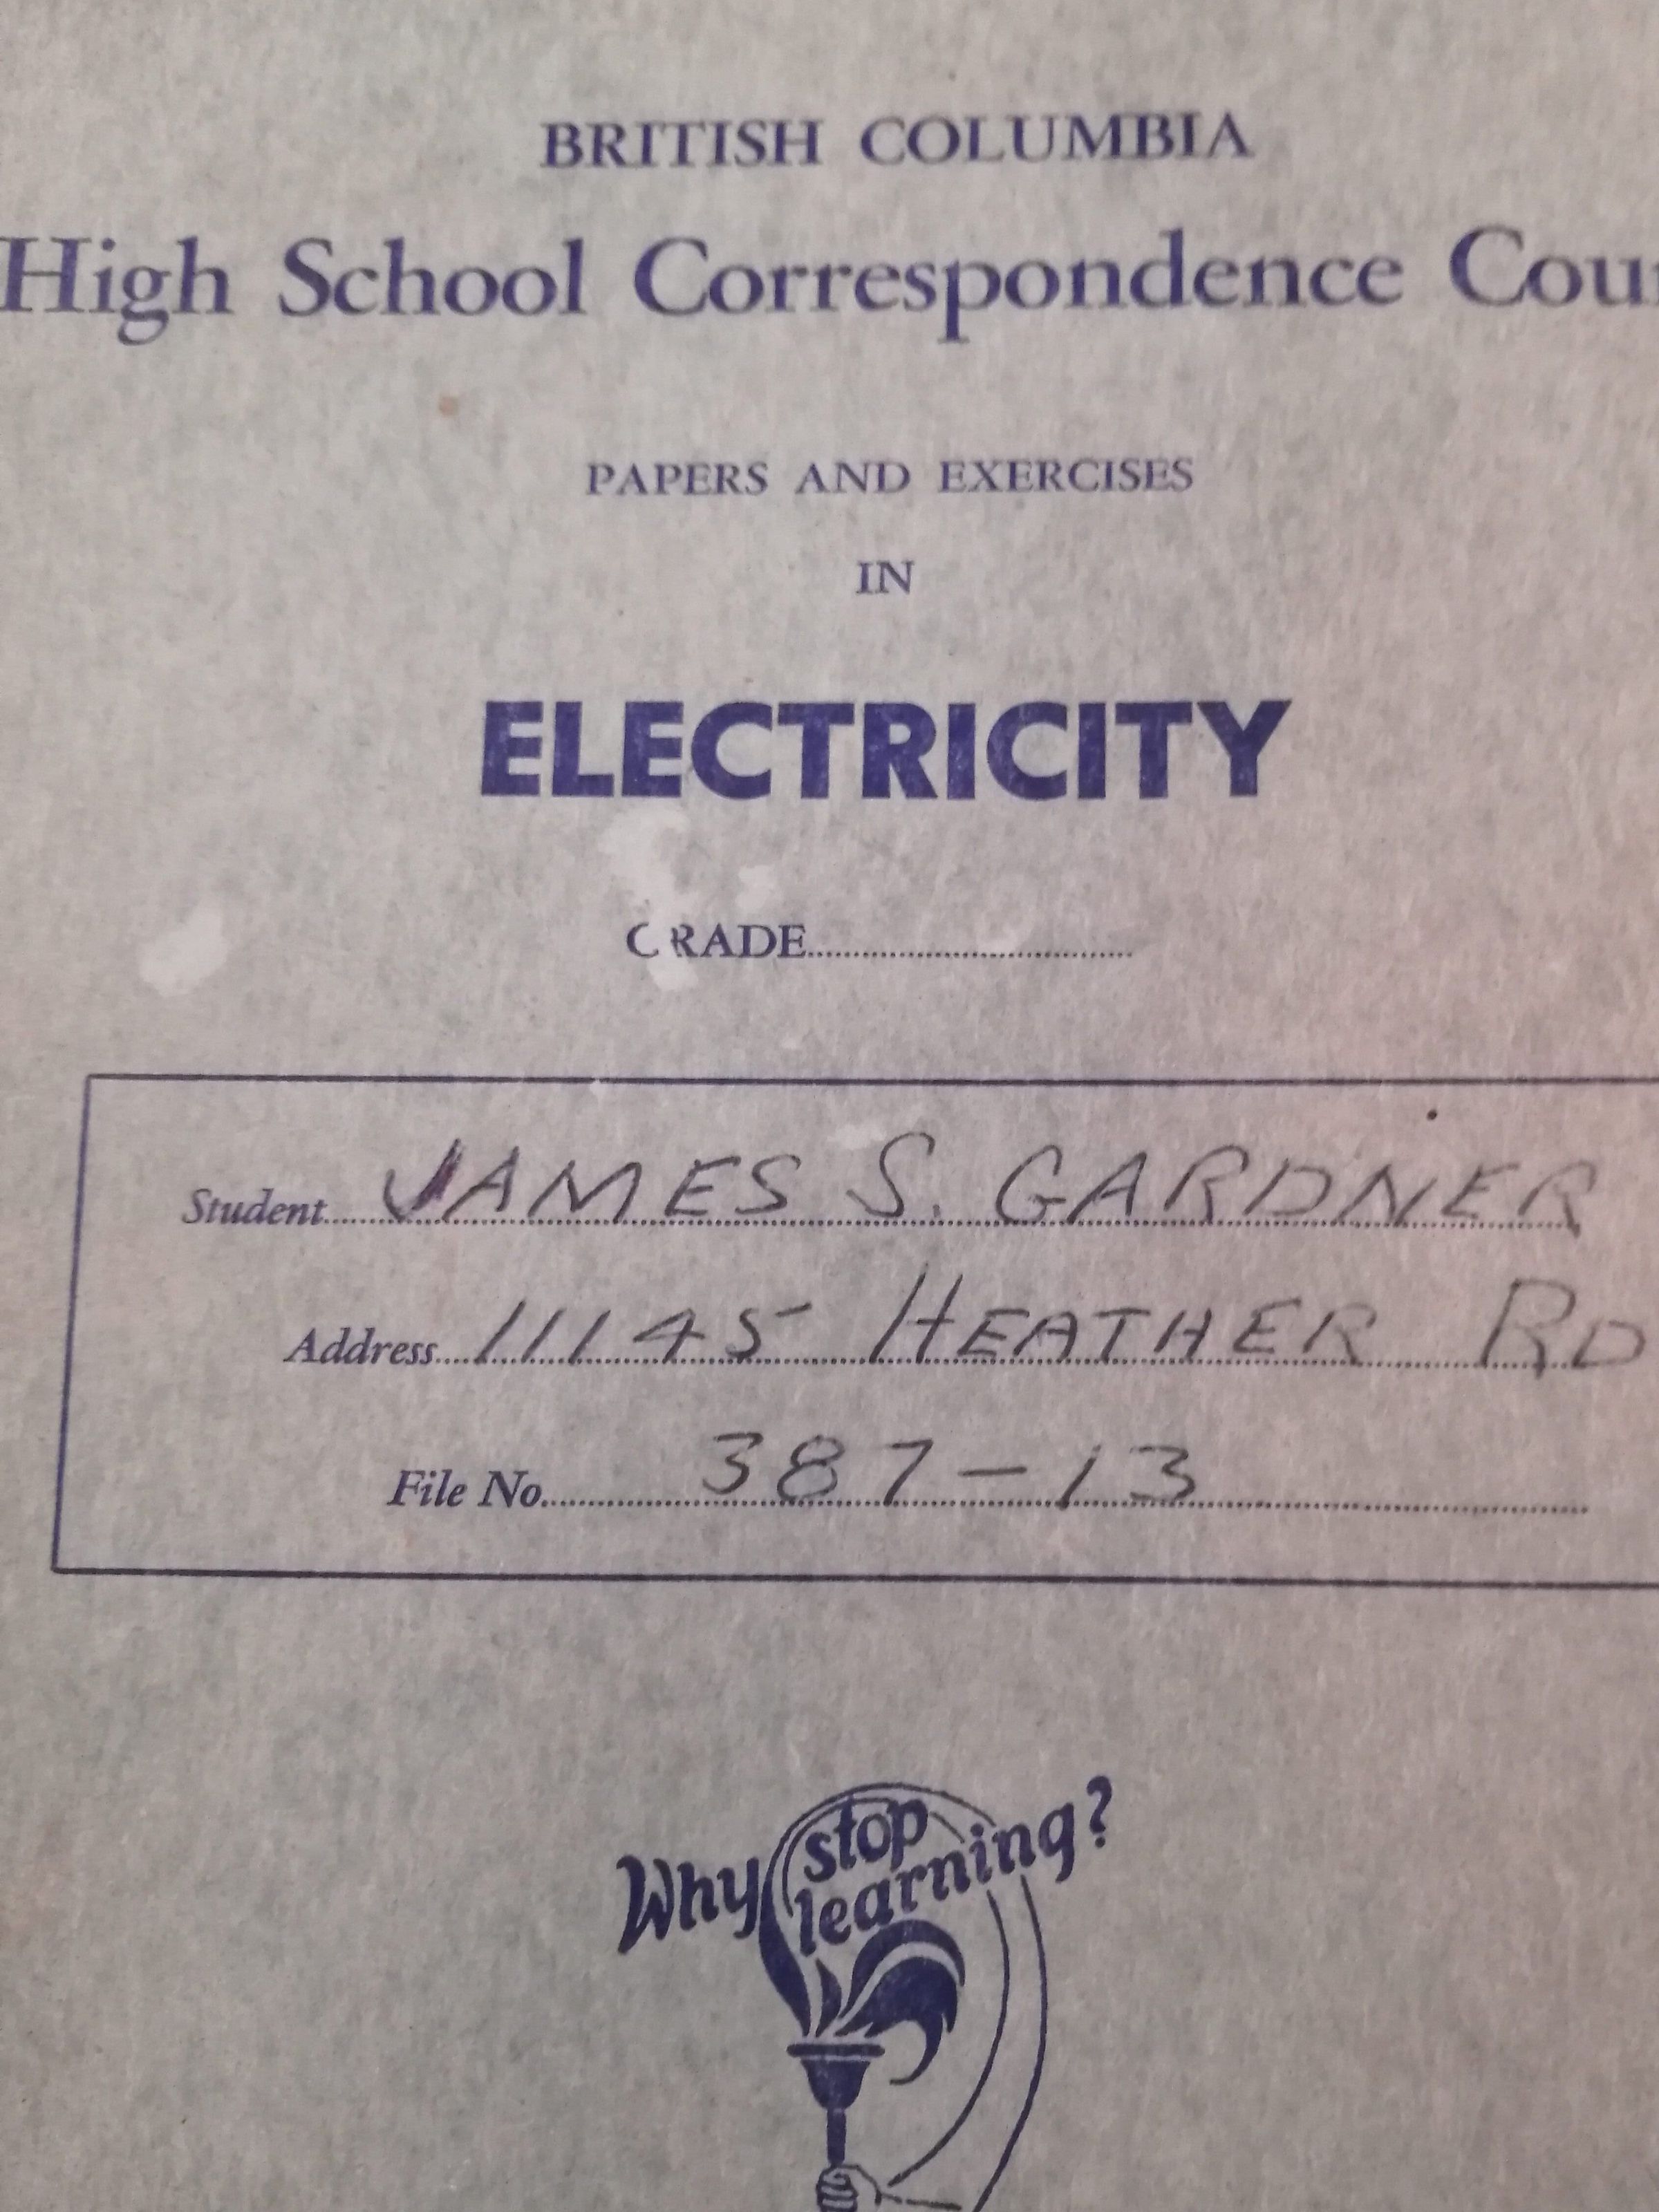 BRITISH COLUMBIA
High School Correspondence
PAPERS AND EXERCISES
IN
ELECTRICITY
GRADE
Student JAMES S. GARDNER
Address 11145 HEATHER RD
File No. 387-13
Why stop learning?